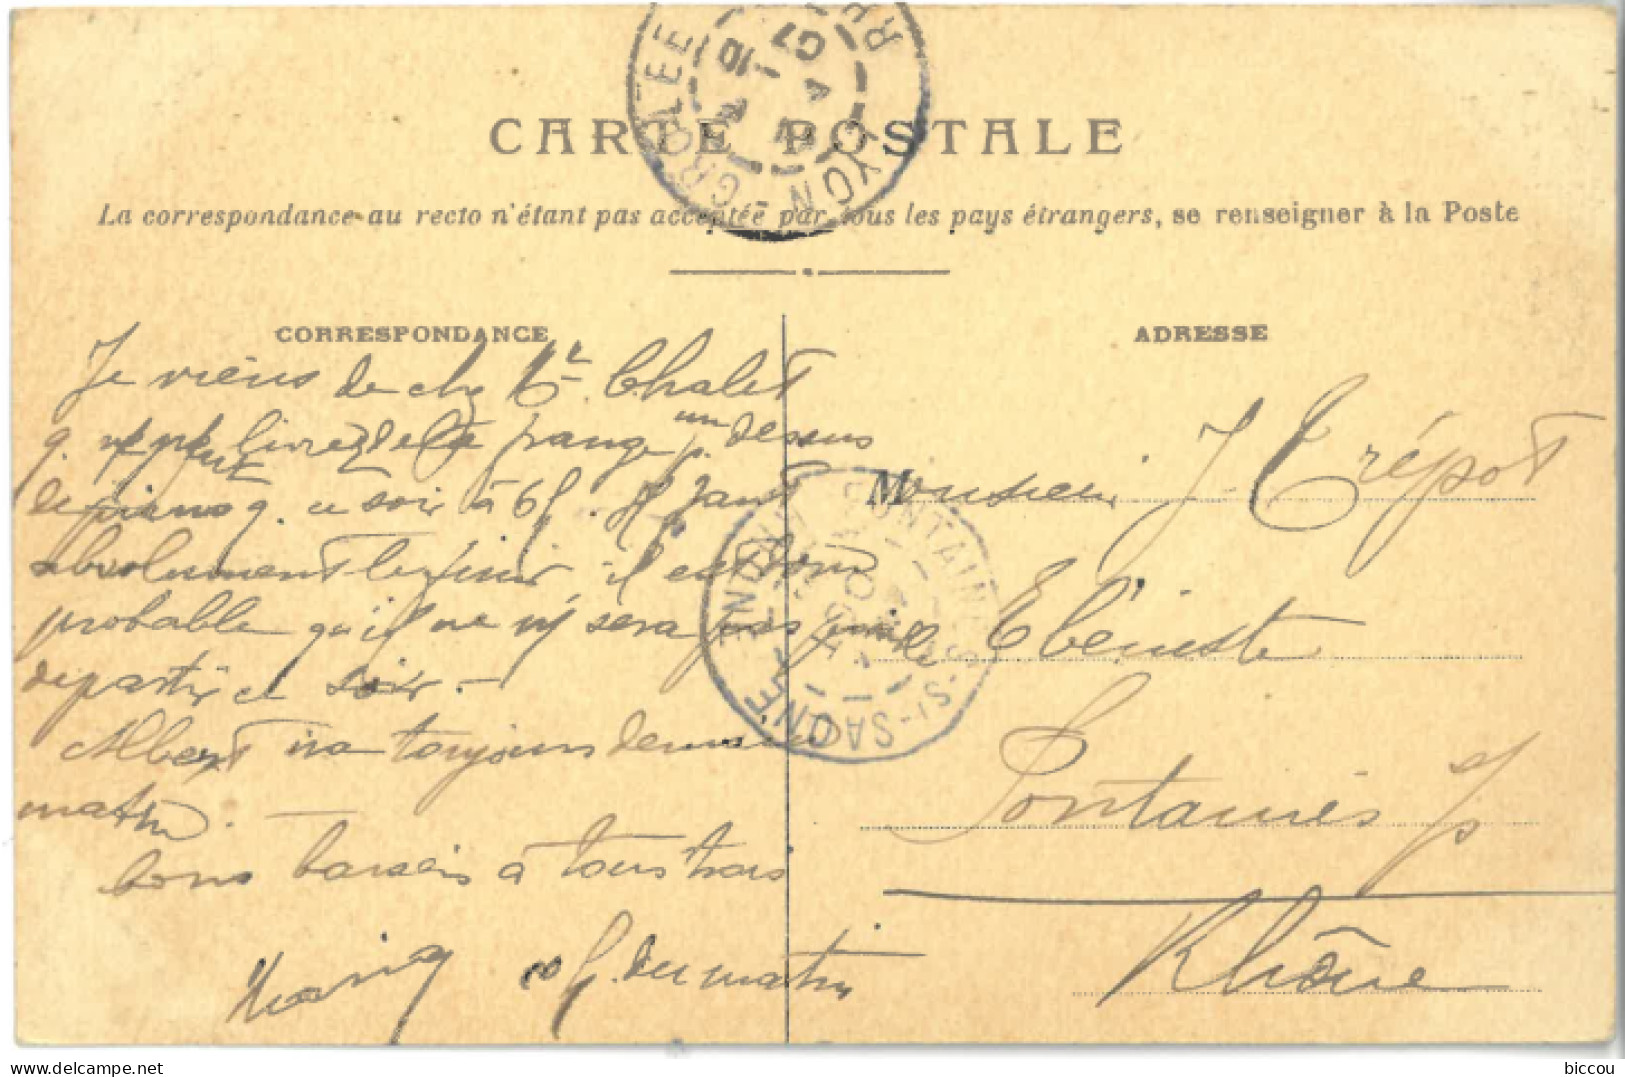 CARTE POSTALE
La correspondance au recto n'étant pas acceptée par tous les pays étrangers, se renseigner à la Poste
LYON-GROLÉE
CORRESPONDANCE
Je viens de chez Mr. Chalet
q. ne peut livrer de la frange un dessus
de piano q. ce soir à 6h.
absolument le finir il est
probable qu'il ne m' sera pas
de partir ce soir. -
Albert ira toujours demain
matin. -
bons baisers à tous trois
h. du matin
ADRESSE
Monsieur J. Trépot
Ebéniste
Fontaines s/s
Rhône
FONTAINES-S-SAONE
delcampe.net
biccou